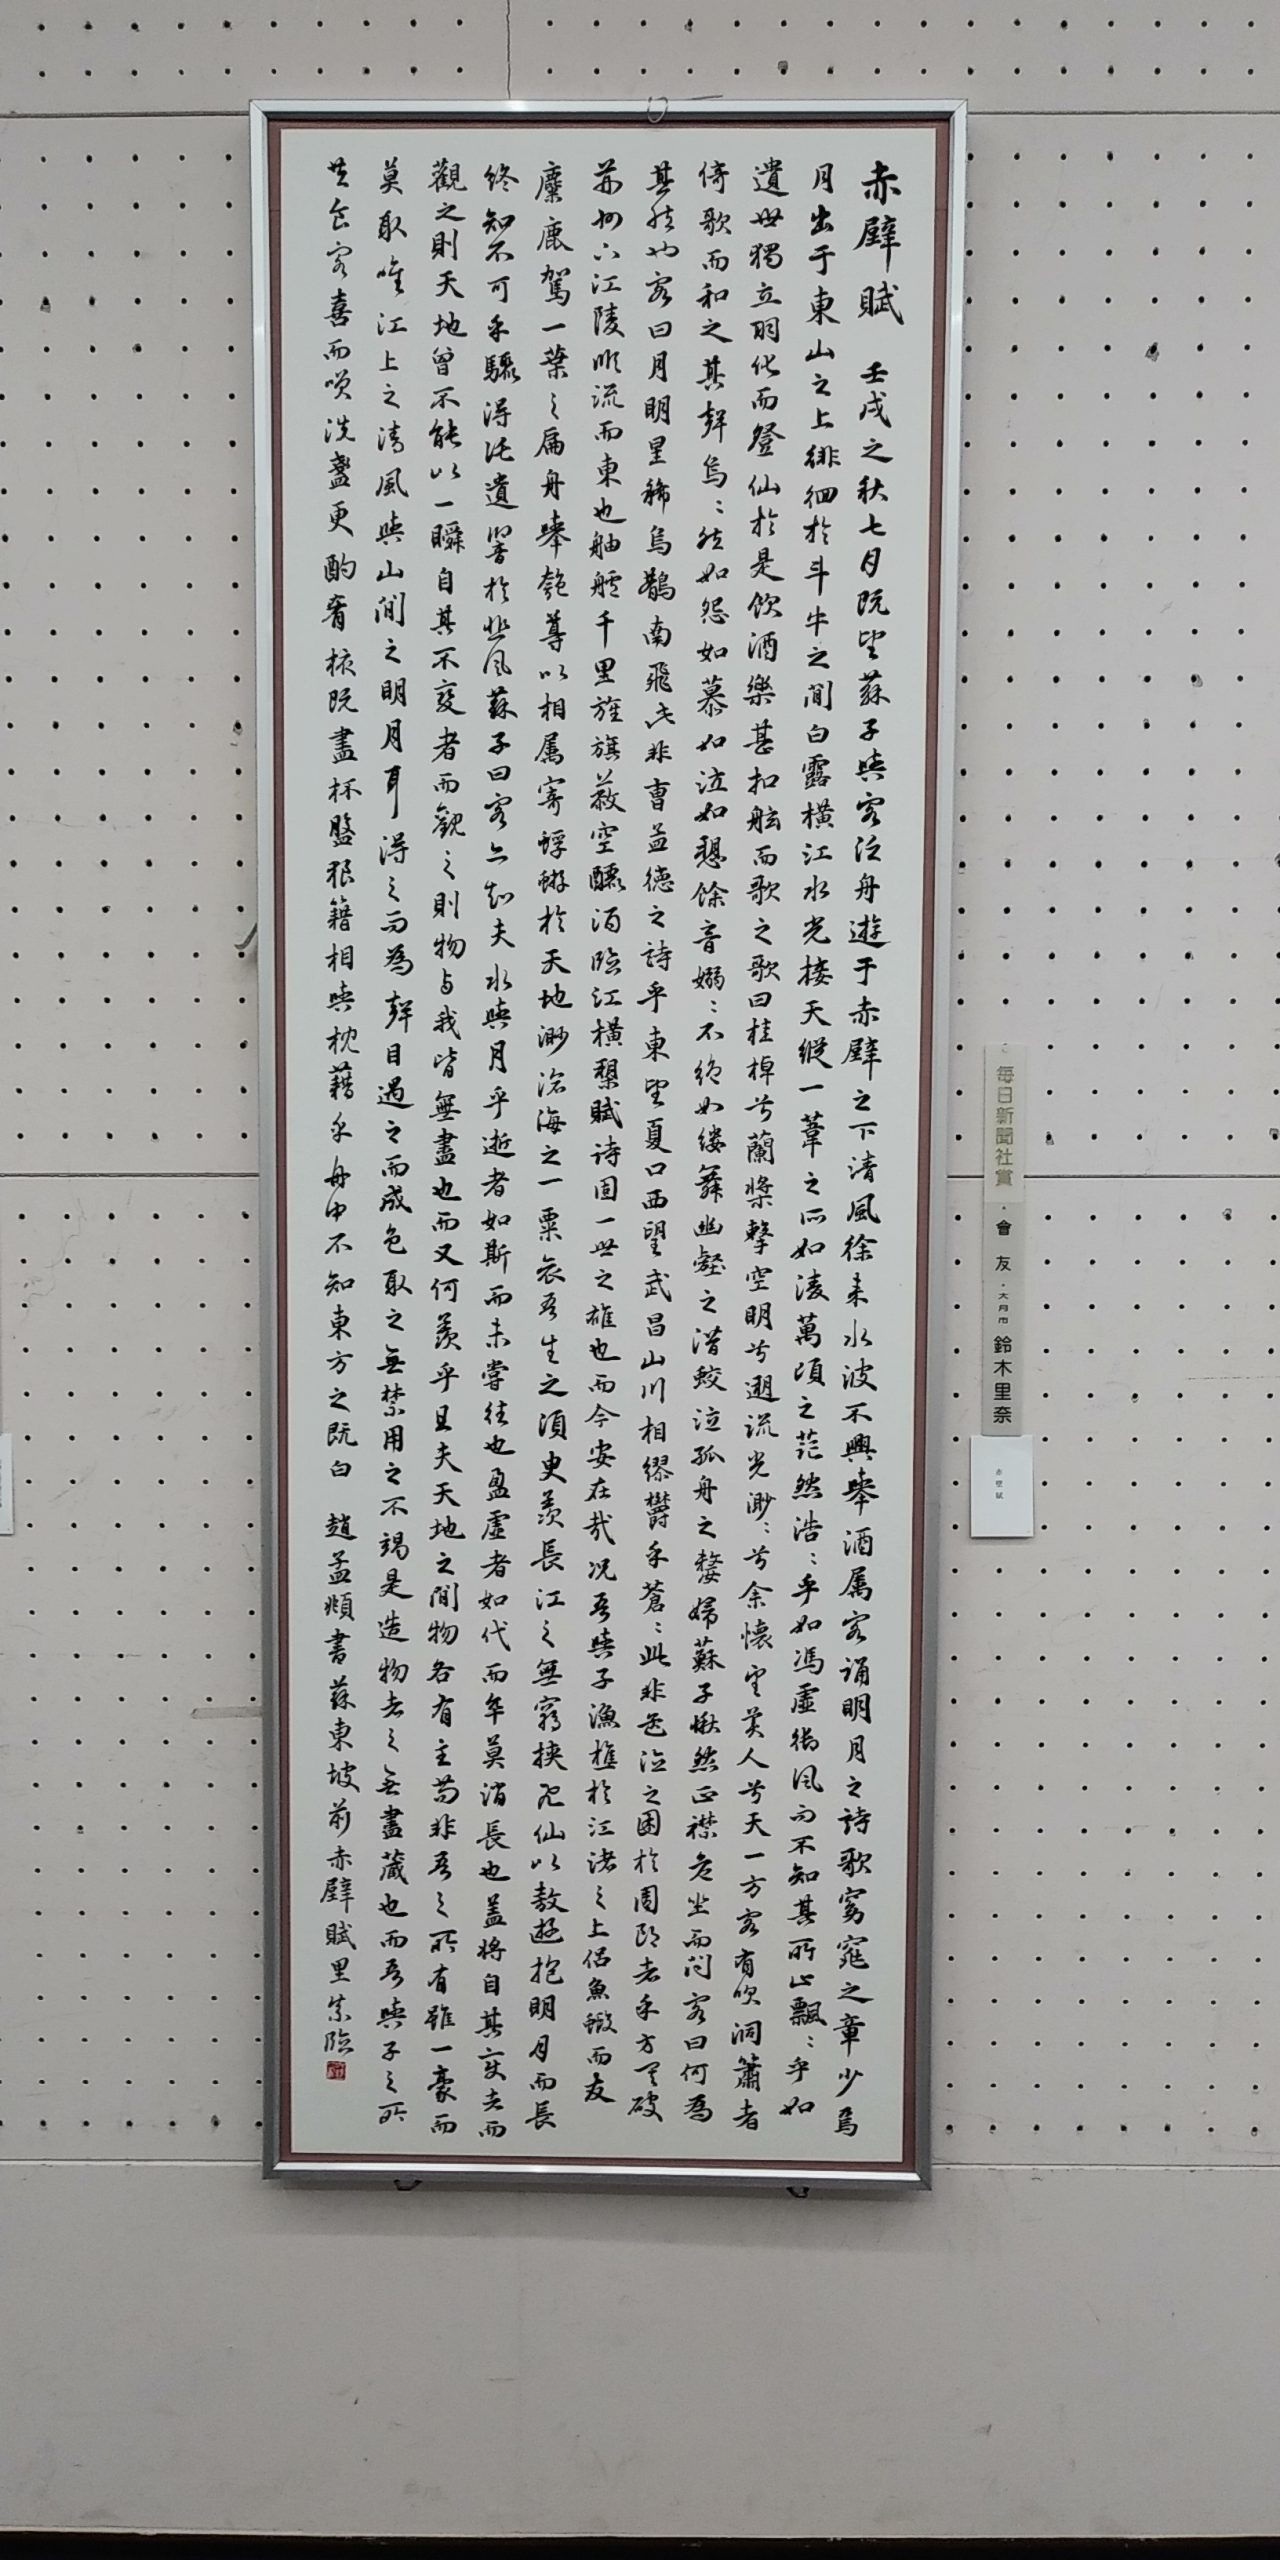 赤壁賦 壬戌之秋七月既望蘇子與客泛舟遊于赤壁之下清風徐来水波不興舉酒属客誦明月之詩歌窈窕之章少焉
月出于東山之上徘徊於斗牛之間白露横江水光接天縦一葦之所如淩萬頃之茫然浩〻乎如馮虚御風而不知其所止飄〻乎如
遺世獨立羽化而登仙於是飲酒樂甚扣舷而歌之歌曰桂棹兮蘭槳擊空明兮遡流光渺〻兮余懐望美人兮天一方客有吹洞簫者
倚歌而和之其聲烏〻然如怨如慕如泣如愬餘音嫋〻不絶如縷舞幽壑之潜蛟泣孤舟之嫠婦蘇子愀然正襟危坐而問客曰何為
其然也客曰月明星稀烏鵲南飛此非曹孟徳之詩乎東望夏口西望武昌山川相繆欝乎蒼〻此非孟徳之困於周郎者乎方其破
荊州下江陵順流而東也舳艫千里旌旗蔽空釃酒臨江横槊賦诗固一世之雄也而今安在哉况吾與子漁樵於江渚之上侶魚蝦而友
麋鹿駕一葉之扁舟舉匏尊以相属寄蜉蝣於天地渺滄海之一粟哀吾生之須臾羨長江之無窮挟飛仙以敖遊抱明月而長
終知不可乎驟得託遺響於悲風蘇子曰客亦知夫水與月乎逝者如斯而未嘗往也盈虚者如代而卒莫消長也蓋将自其変者而
觀之則天地曾不能以一瞬自其不变者而觀之則物与我皆無盡也而又何羨乎且夫天地之間物各有主苟非吾之所有雖一豪而
莫取唯江上之清風與山間之明月耳得之而為聲目遇之而成色取之無禁用之不竭是造物者之無盡蔵也而吾與子之所
共食客喜而咲洗盞更酌肴核既盡杯盤狼籍相與枕藉乎舟中不知東方之既白 趙孟頫書蘇東坡前赤壁賦里奈臨
毎日新聞社賞・會友・大月市 鈴木里奈
赤壁賦